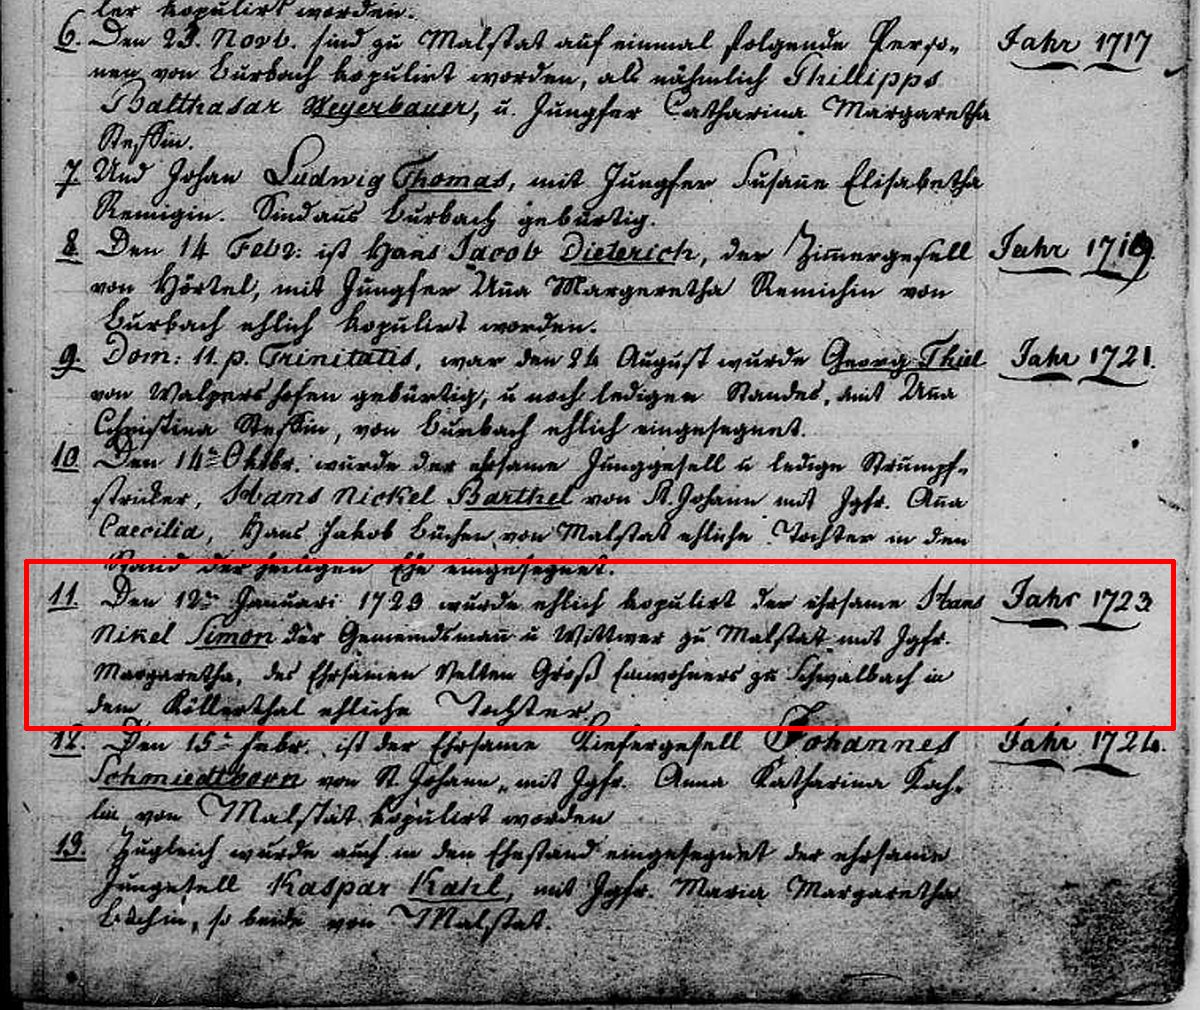 ler kopulirt worden.
6. Den 23. Novb. sind zu Malstat auf einmal folgende Perso- Jahr 1717
nen von Burbach kopulirt worden, als nähmlich Phillipps
Balthasar Meyerbauer, u. Jungfer Catharina Margaretha
Steffin.
7. Und Johan Ludwig Thomas, mit Jungfer Susane Elisabetha
Remigin. Sind aus Burbach gebürtig.
8. Den 14 Febr: ist Hans Jacob Dieterich, der Zimergesell Jahr 1719
von Hörtel, mit Jungfer Ana Margeretha Remichin von
Burbach ehlich kopulirt worden.
9. Dom: 11. p. Trinitatis, war den 24 August wurde Georg Thiel Jahr 1721.
von Walpershofen gebürtig, u noch ledigen Standes, mit Ana
Christina Steffin, von Burbach ehlich eingesegnet.
10. Den 14ten Oktbr. wurde der ehrsame Junggesell u ledige Strumpf-
stricker, Hans Nickel Barthel von St. Johann mit Jgfr. Ana
Caecilia, Hans Jakob Büchen von Malstat ehliche Tochter in den
Stand der heiligen Ehe eingesegnet.
11. Den 12ten Januari 1723 wurde ehlich kopulirt der ehrsame Hans Jahr 1723
Nikel Simon der Gemeindsman u Wittwer zu Malstat mit Jgfr.
Margaretha, des Ehrsamen Velten Groß Einwohners zu Schwalbach in
dem Köllerthal ehliche Tochter.
12. Den 15ten Febr. ist der Ehrsame Kiefergesell Johannes Jahr 1724.
Schmiedtborn von St. Johann, mit Jgfr. Anna Katharina Koch-
lin von Malstat kopulirt worden
13. Zugleich wurde auch in den Ehestand eingesegnet der ehrsame
Jungesell Kaspar Kahl, mit Jgfr. Maria Margaretha
Büchin, so beide von Malstat.